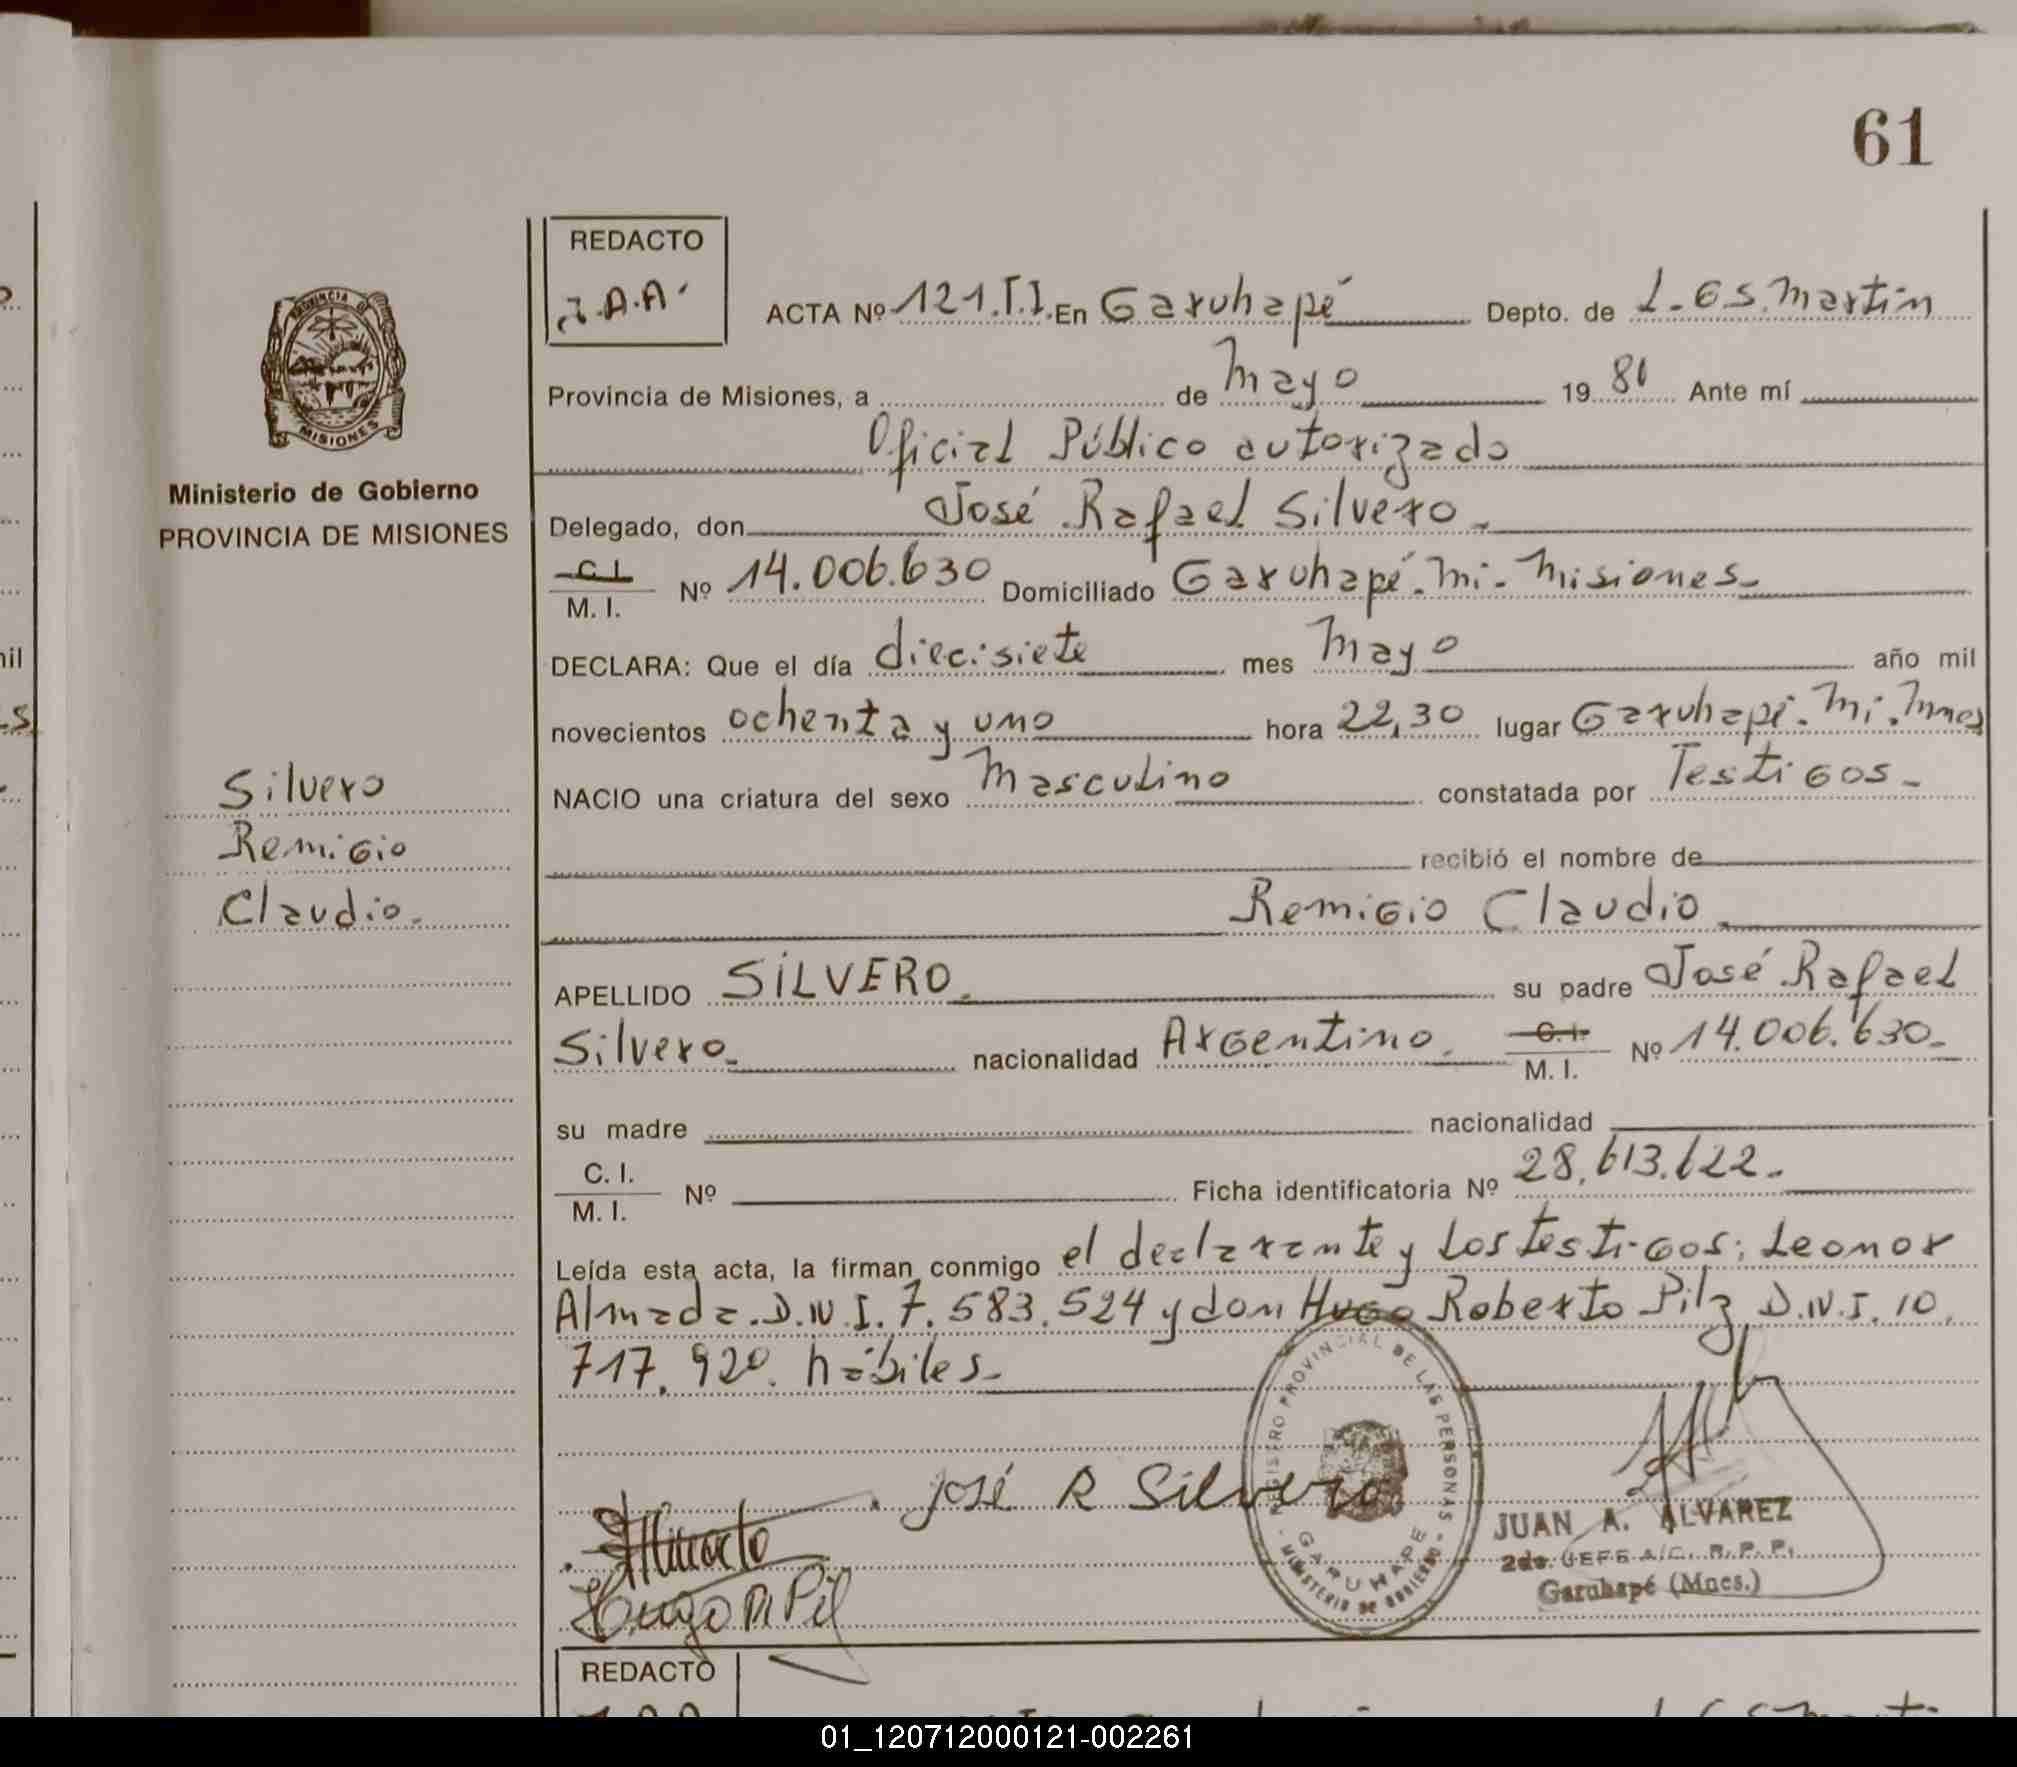 61
REDACTO
J.A.A.
ACTA Nº 121.T.I. En Garuhapé Depto. de L.G.S.Martin
Provincia de Misiones, a de Mayo 1981 Ante mí
Oficial Público autorizado
Delegado, don José Rafael Silvero.
C.I. M. I. Nº 14.006.630 Domiciliado Garuhapé.Mi-Misiones-
DECLARA: Que el día diecisiete mes Mayo año mil
novecientos ochenta y uno hora 22,30 lugar Garuhapé.Mi.Mnes
NACIO una criatura del sexo Masculino constatada por Testigos-
recibió el nombre de
Remigio Claudio
APELLIDO SILVERO. su padre José Rafael
Silvero- nacionalidad Argentino. C.I. M. I. Nº 14.006.630-
su madre nacionalidad
C. I. M. I. Nº Ficha identificatoria Nº 28.613.622.
Leída esta acta, la firman conmigo el declarante y los testigos: Leonor
Almada.D.N.I.7.583.524 y don Hugo Roberto Pilz D.N.I.10.
717.920. hábiles-
José R Silvero
Hugo R Pil
REGISTRO PROVINCIAL DE LAS PERSONAS
GARUHAPE
MINISTERIO DE GOBIERNO
JUAN A. ALVAREZ
2do. JEFE A/C. R. P. P.
Garuhapé (Mnes.)
PROVINCIA DE
MISIONES
Ministerio de Gobierno
PROVINCIA DE MISIONES
Silvero
Remigio
Claudio.
REDACTO
01_120712000121-002261